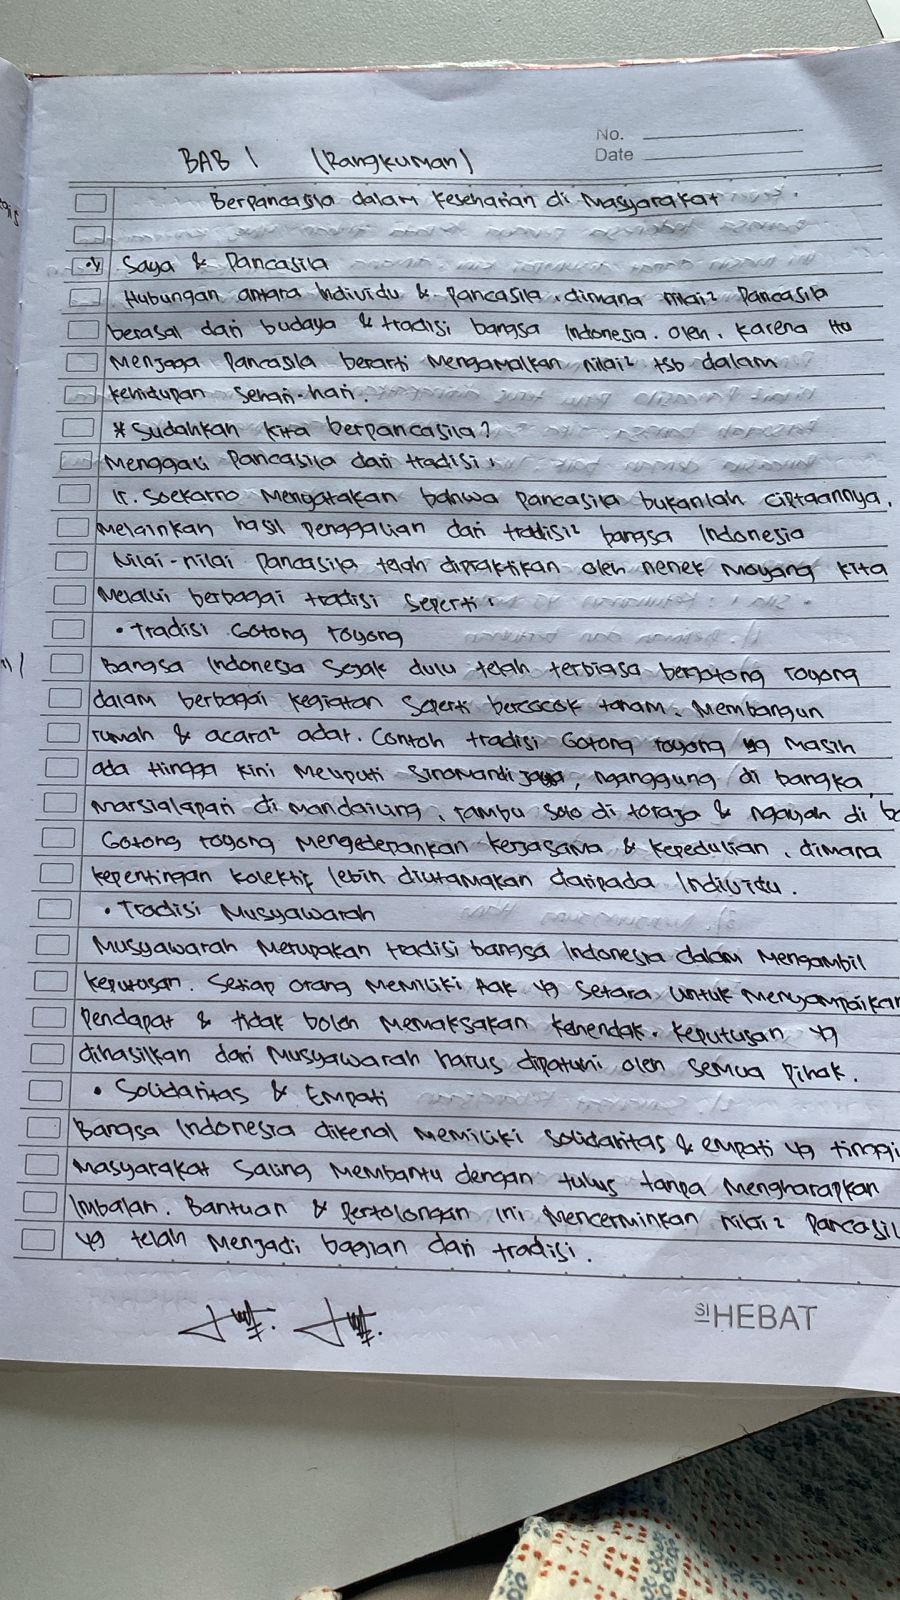 No.
BAB 1 (Rangkuman)
Date
Berpancasila dalam keseharian di Masyarakat
Saya & Pancasila
Hubungan antara Individu & Pancasila, dimana nilai² Pancasila
berasal dari budaya & tradisi bangsa Indonesia. Oleh, karena itu
Menjaga Pancasila berarti Mengamalkan nilai² tsb dalam
kehidupan sehari-hari.
* Sudahkah kita berpancasila?
Menggali Pancasila dari tradisi,
Ir. Soekarno Mengatakan bahwa Pancasila bukanlah ciptaannya,
Melainkan hasil penggalian dari tradisi² bangsa Indonesia
Nilai-nilai Pancasila telah dipraktikan oleh nenek Moyang kita
Melalui berbagai tradisi seperti,
• Tradisi Gotong royong
Bangsa Indonesia Sejak dulu telah terbiasa bergotong royong
dalam berbagai kegiatan seperti bercocok tanam, Membangun
rumah & acara² adat. Contoh tradisi Gotong royong yg Masih
ada Hingga kini Meliputi di bangka,
Marsialapari di Mandailing, rambu solo di toraja & ngayah di
Gotong royong Mengedepankan kerjasama & kepedulian, dimana
kepentingan kolektif lebih diutamakan daripada Individu.
• Tradisi Musyawarah
Musyawarah Merupakan tradisi bangsa Indonesia dalam Mengambil
keputusan. Setiap orang Memiliki Hak yg Setara untuk Menyampaikan
Pendapat & tidak boleh Memaksakan kehendak. Keputusan yg
dihasilkan dari Musyawarah harus dipatuhi oleh semua Pihak.
• Solidaritas & Empati
Bangsa Indonesia dikenal Memiliki solidaritas & empati yg tinggi
Masyarakat Saling Membantu dengan tulus tanpa Mengharapkan
Imbalan. Bantuan & Pertolongan ini Mencerminkan nilai² Pancasil
yg telah Menjadi bagian dari tradisi.
SI HEBAT